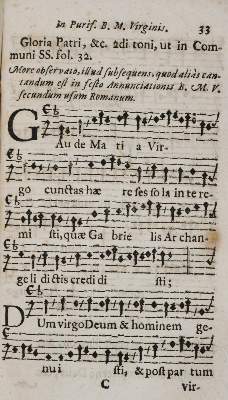 In Purif. B. M. Virginis. 33
Gloria Patri, &c. 2di toni, ut in Com-
muni SS. fol. 32.
More observato, illud subsequens, quod aliàs can-
tandum est in festo Annunciationis B. M. V.
secundum usum Romanum.
GAu de Ma ri a Vir-
go cunctas hæ re ses so la in te re-
mi sti, quæ Ga brie lis Ar chan-
ge li dictis credi di sti;
DUm virgo Deum & hominem ge-
nu i sti, & post par tum
C vir-